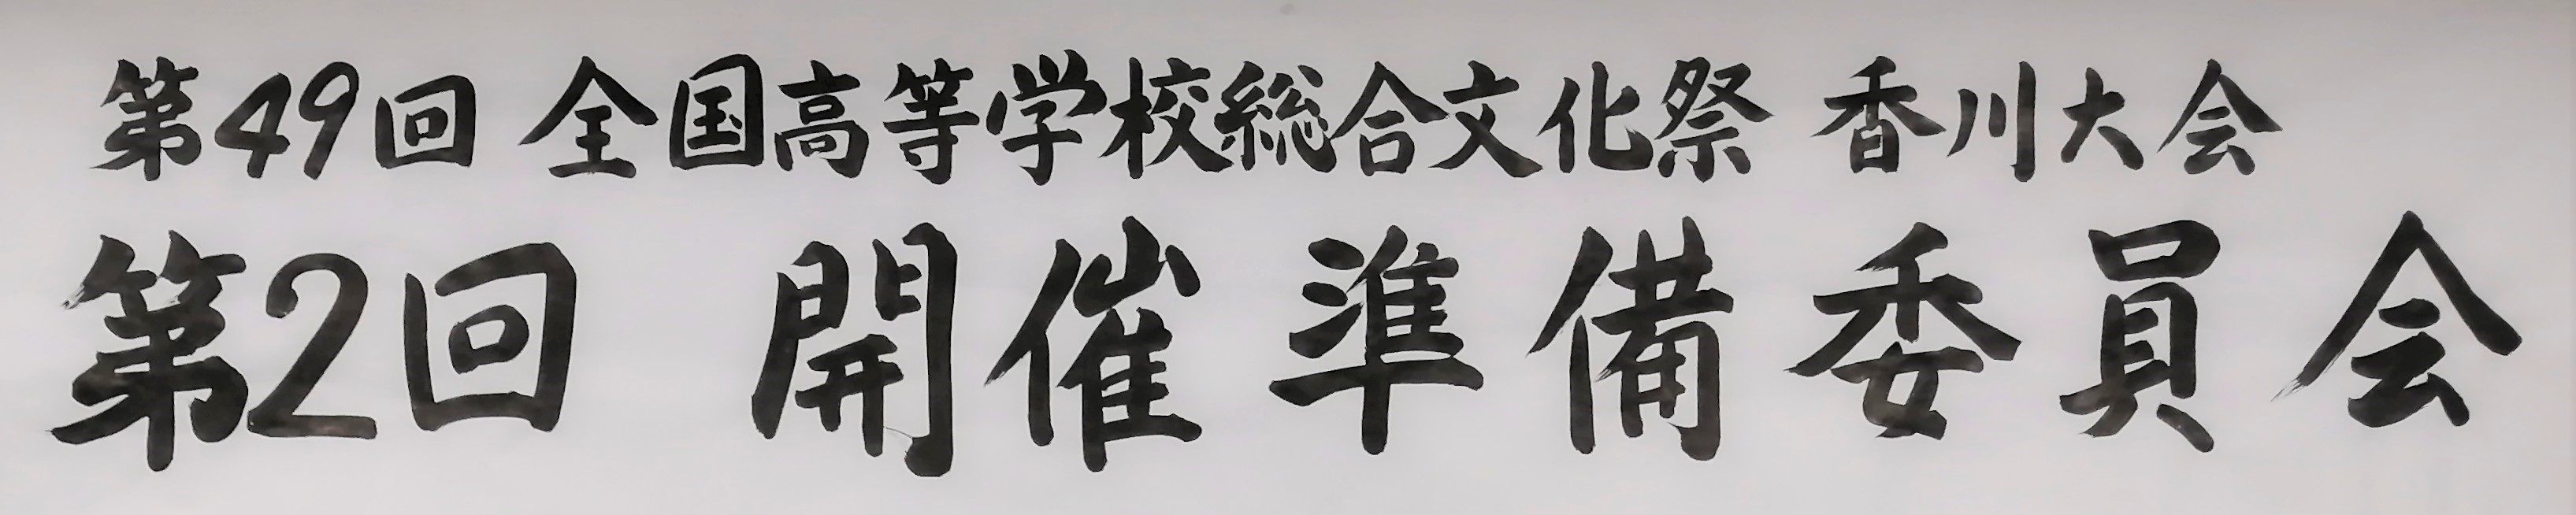 第49回 全国高等学校総合文化祭 香川大会
第2回 開催準備委員会